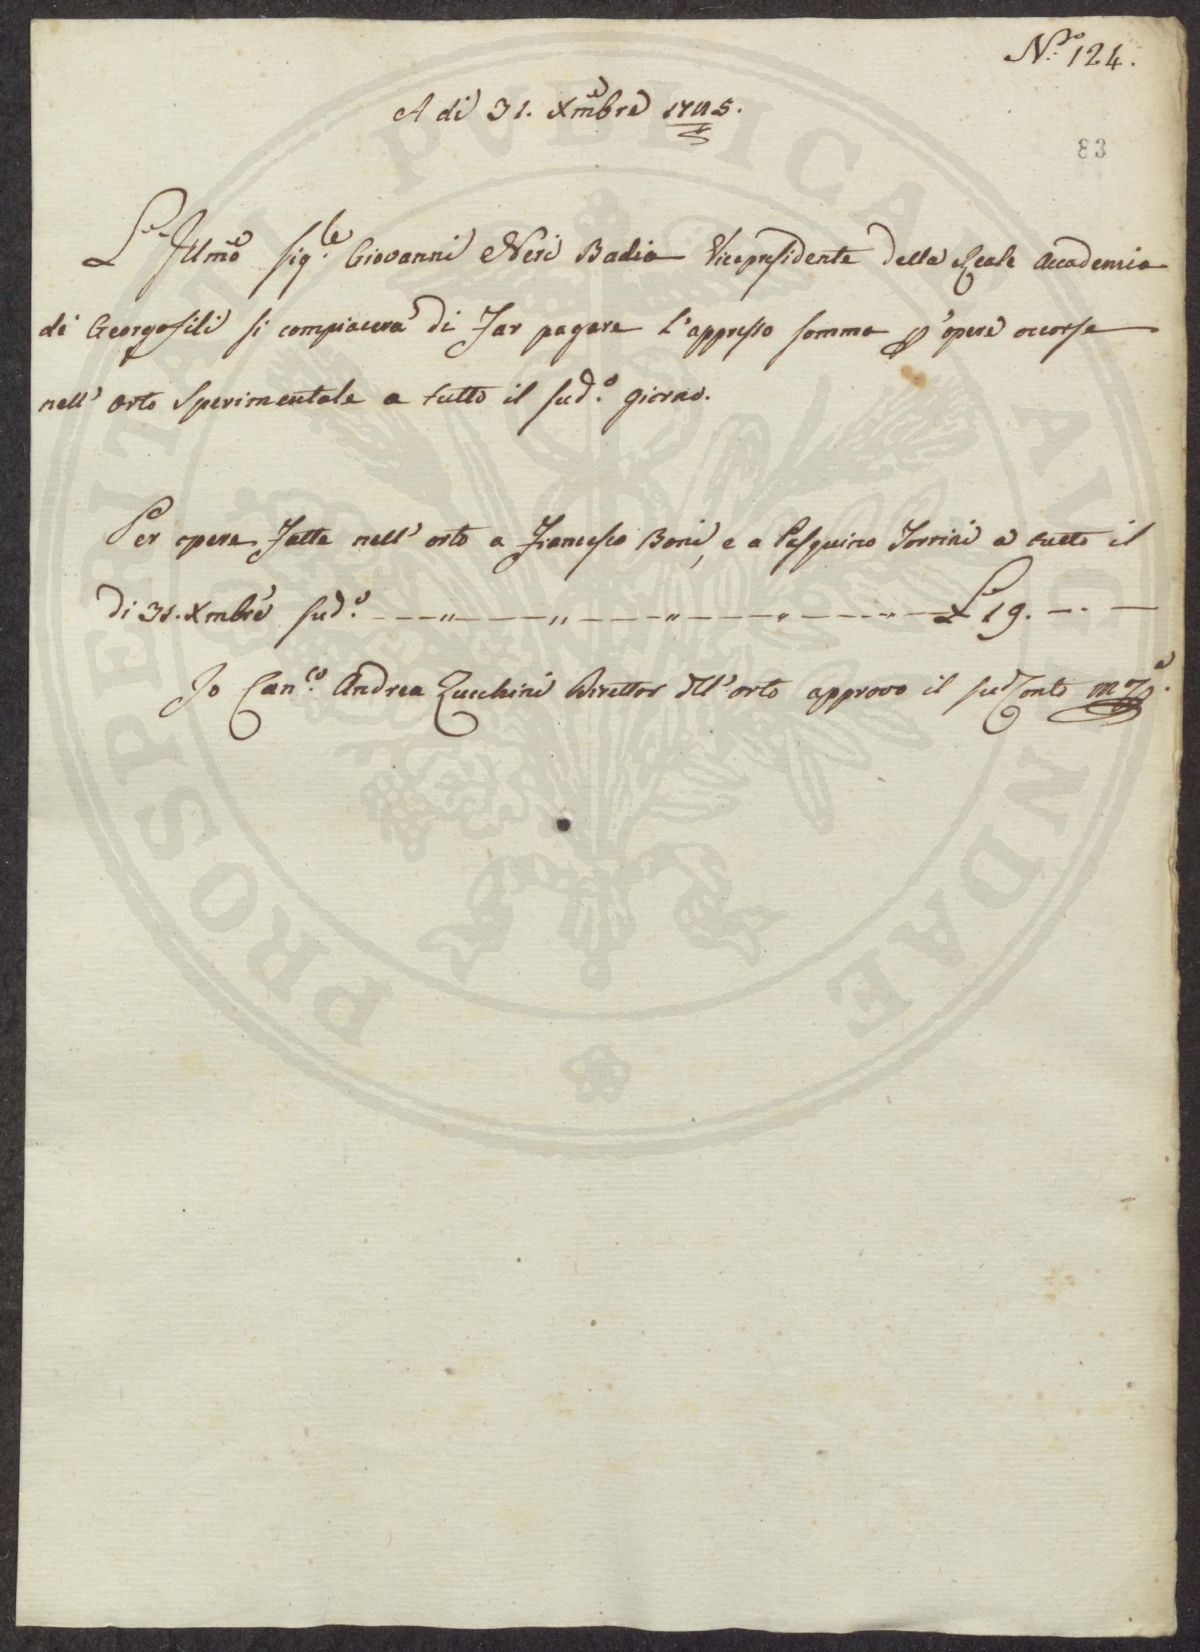 N.ro 124.
A di 31. Xmbre 1785.
83
L'Illmo Sig.le Giovanni Neri Badia Vicepresidente della Reale Accademia
de Georgofili si compiacerà di far pagare l'appresso somma p opere occorse
nell'orto Sperimentale a tutto il sud.o giorno.
Per opere fatte nell'orto a Francesco Boni, e a Pasquino Torrini a tutto il
di 31. Xmbre sud.o — — " — — " — — " — — " — — " — £ 19. — . —
Io Can.co Andrea Zucchini Direttor dell'orto approvo il sud.o Conto mp.o
PROSPERITATI PVBLICAE AVGENDAE